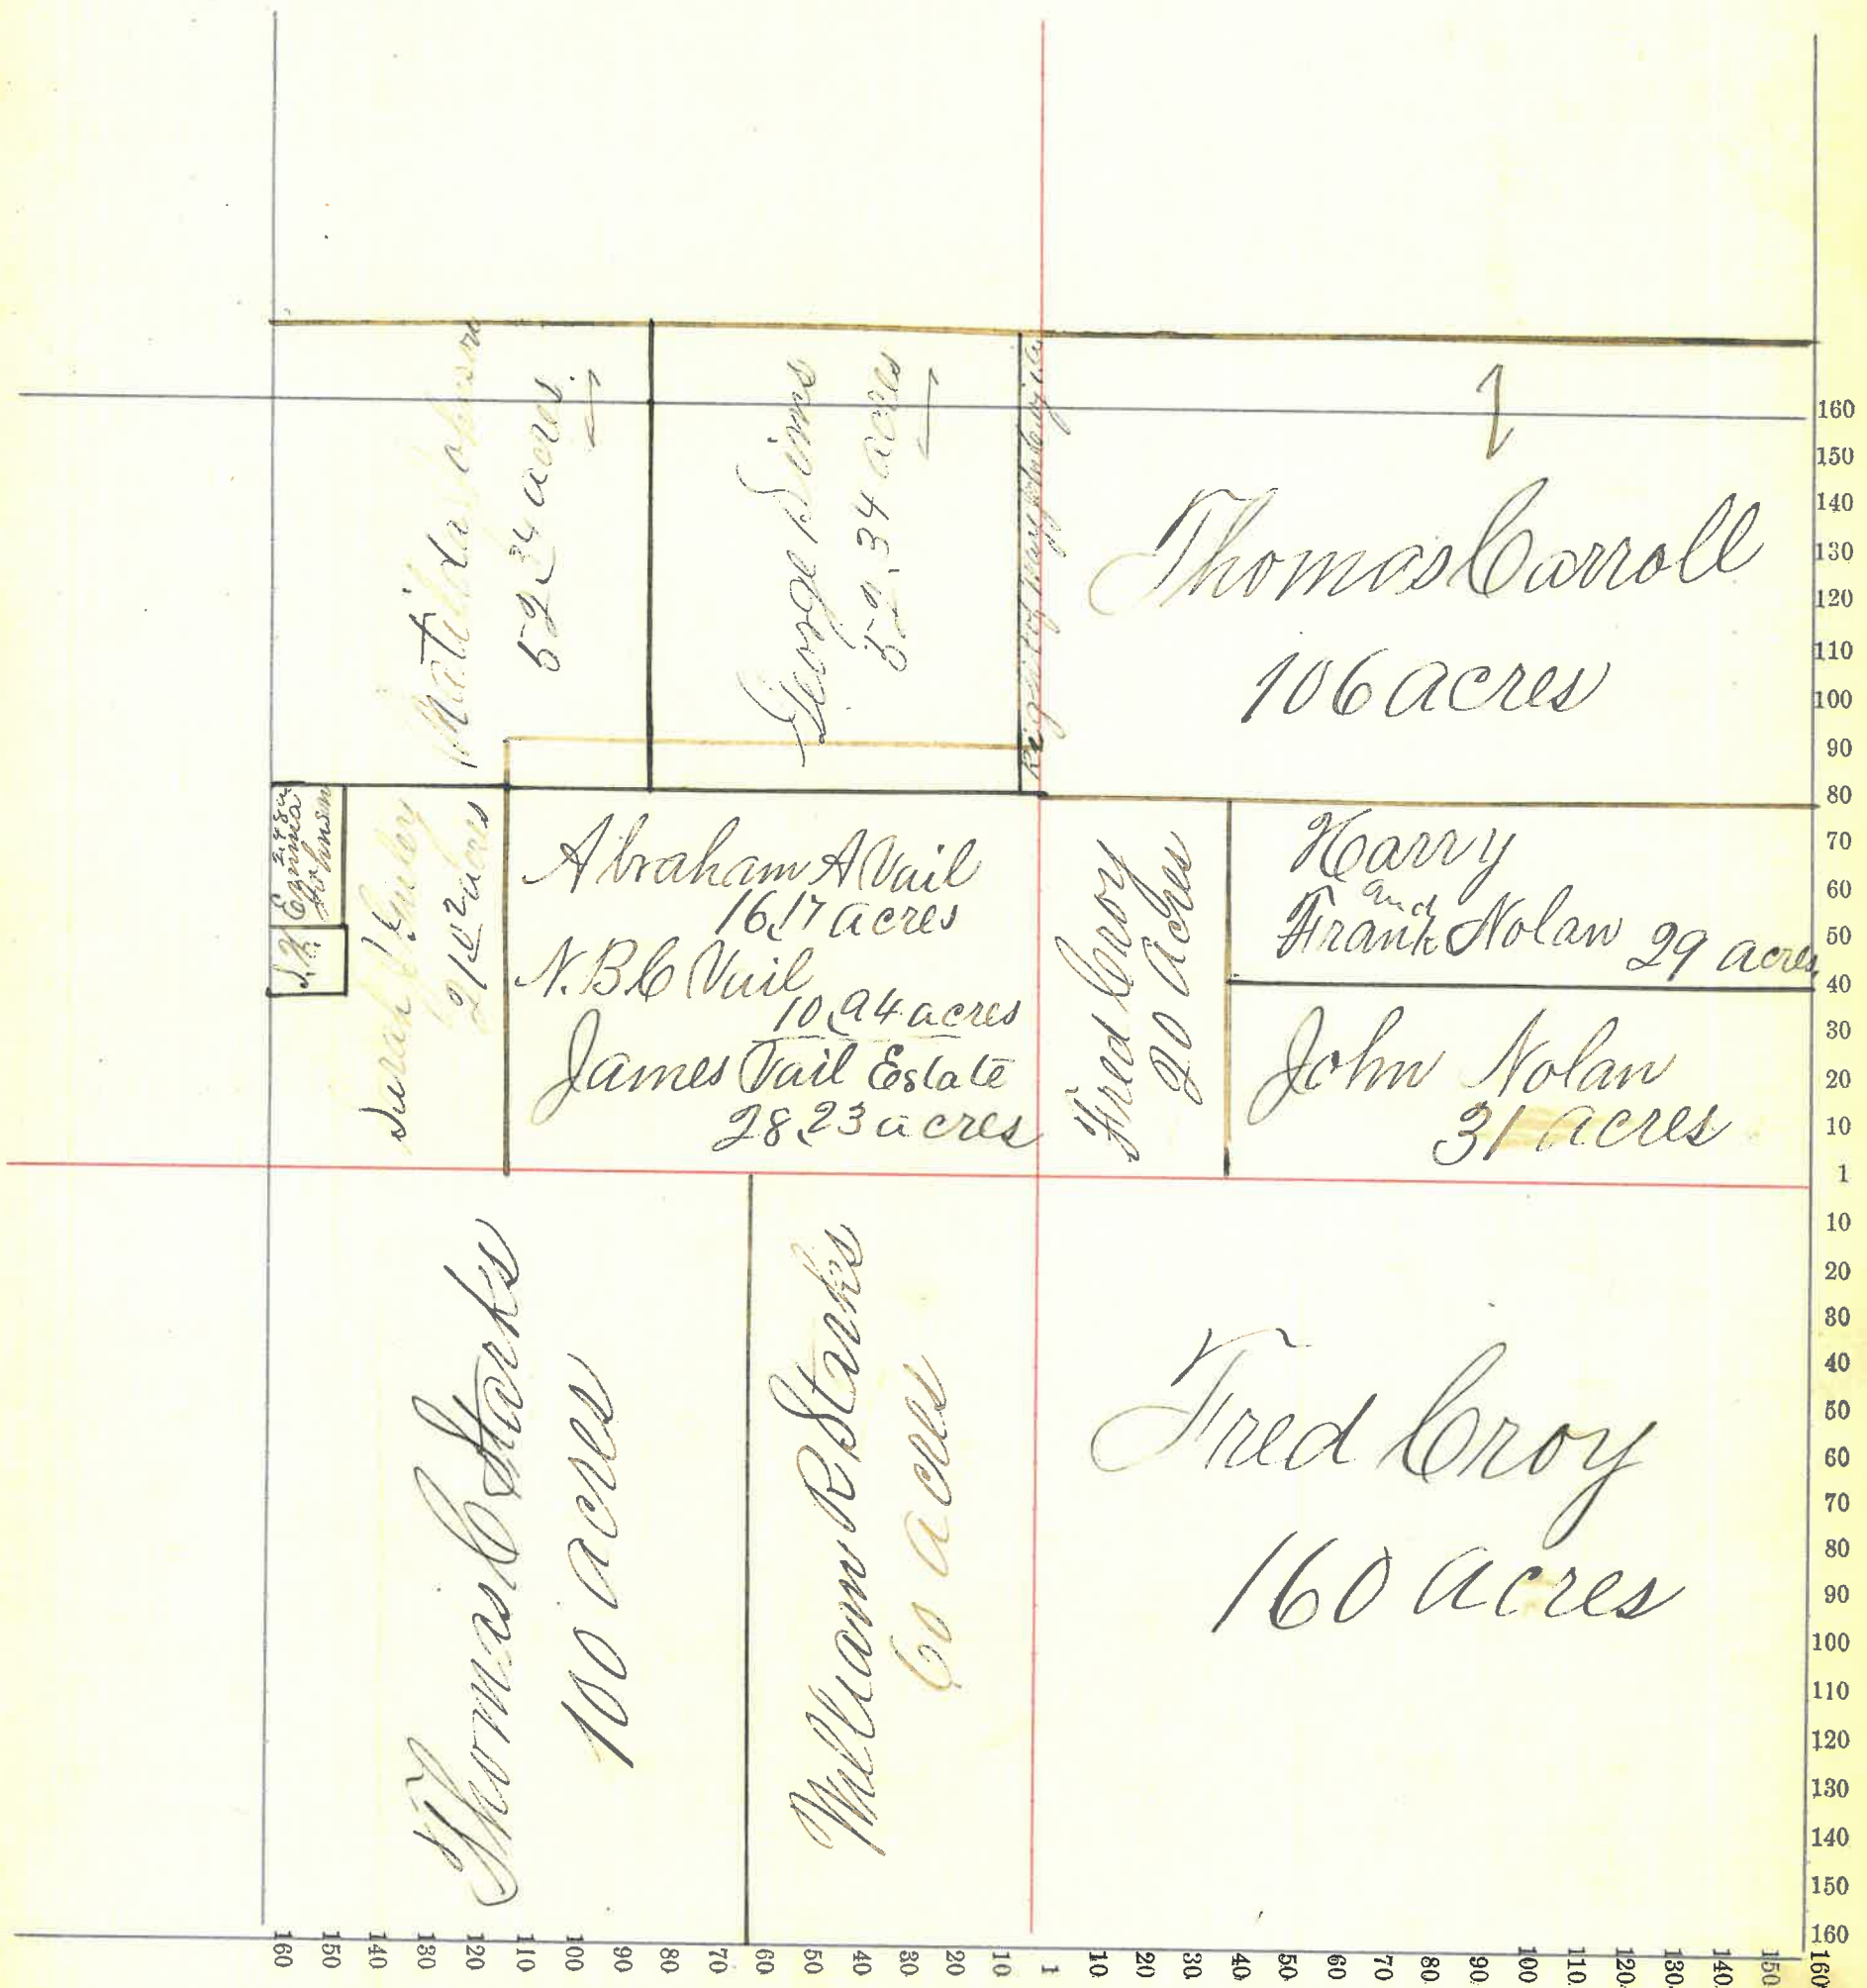 Matilda Johnson
52.34 acres
George Sims
52.34 acres
Right of
Thomas Carroll
106 acres
2.48a
Emma
Johnson
Sarah
21.02 acres
Abraham A Vail
16.17 acres
N. B C Vail
10.94 acres
James Vail Estate
28.23 acres
Fred Croy
20 Acres
Harry
and
Frank Nolan 29 acres
John Nolan
31 acres
Thomas C Starks
100 acres
William R Starks
60 acres
Fred Croy
160 acres
160
150
140
130
120
110
100
90
80
70
60
50
40
30
20
10
1
10
20
30
40
50
60
70
80
90
100
110
120
130
140
150
160
160 150 140 130 120 110 100 90 80 70 60 50 40 30 20 10 1 10 20 30 40 50 60 70 80 90 100 110 120 130 140 150 160